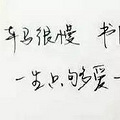 车马很慢 书
一生只够爱一